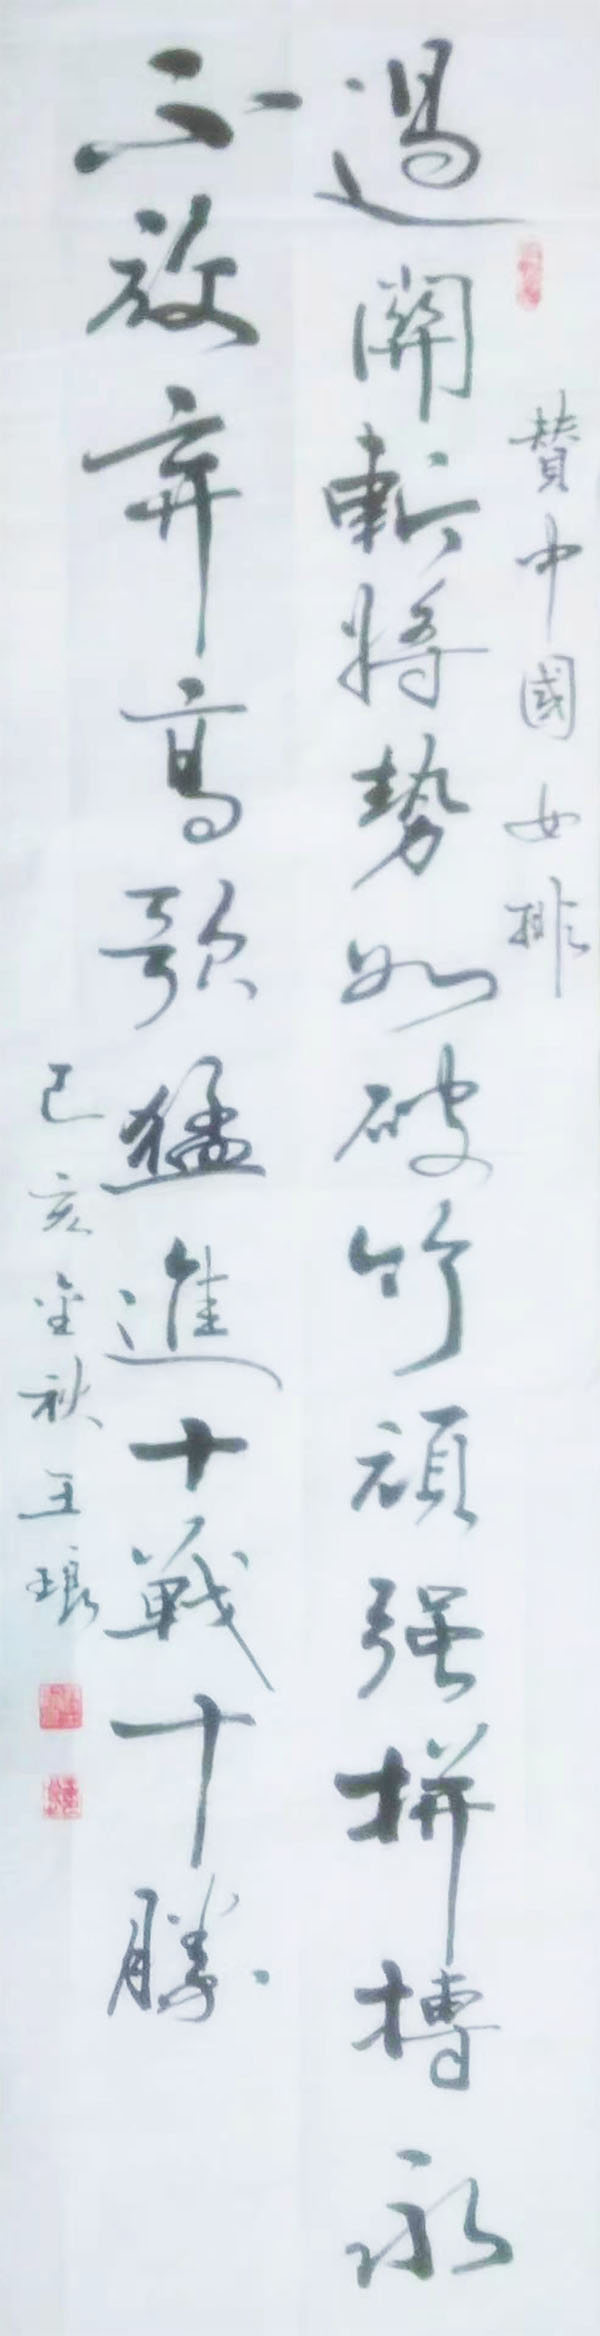 贊中國女排
過關斬將勢如破竹頑强拼搏永
不放弃高歌猛進十戰十勝
己亥金秋王琅